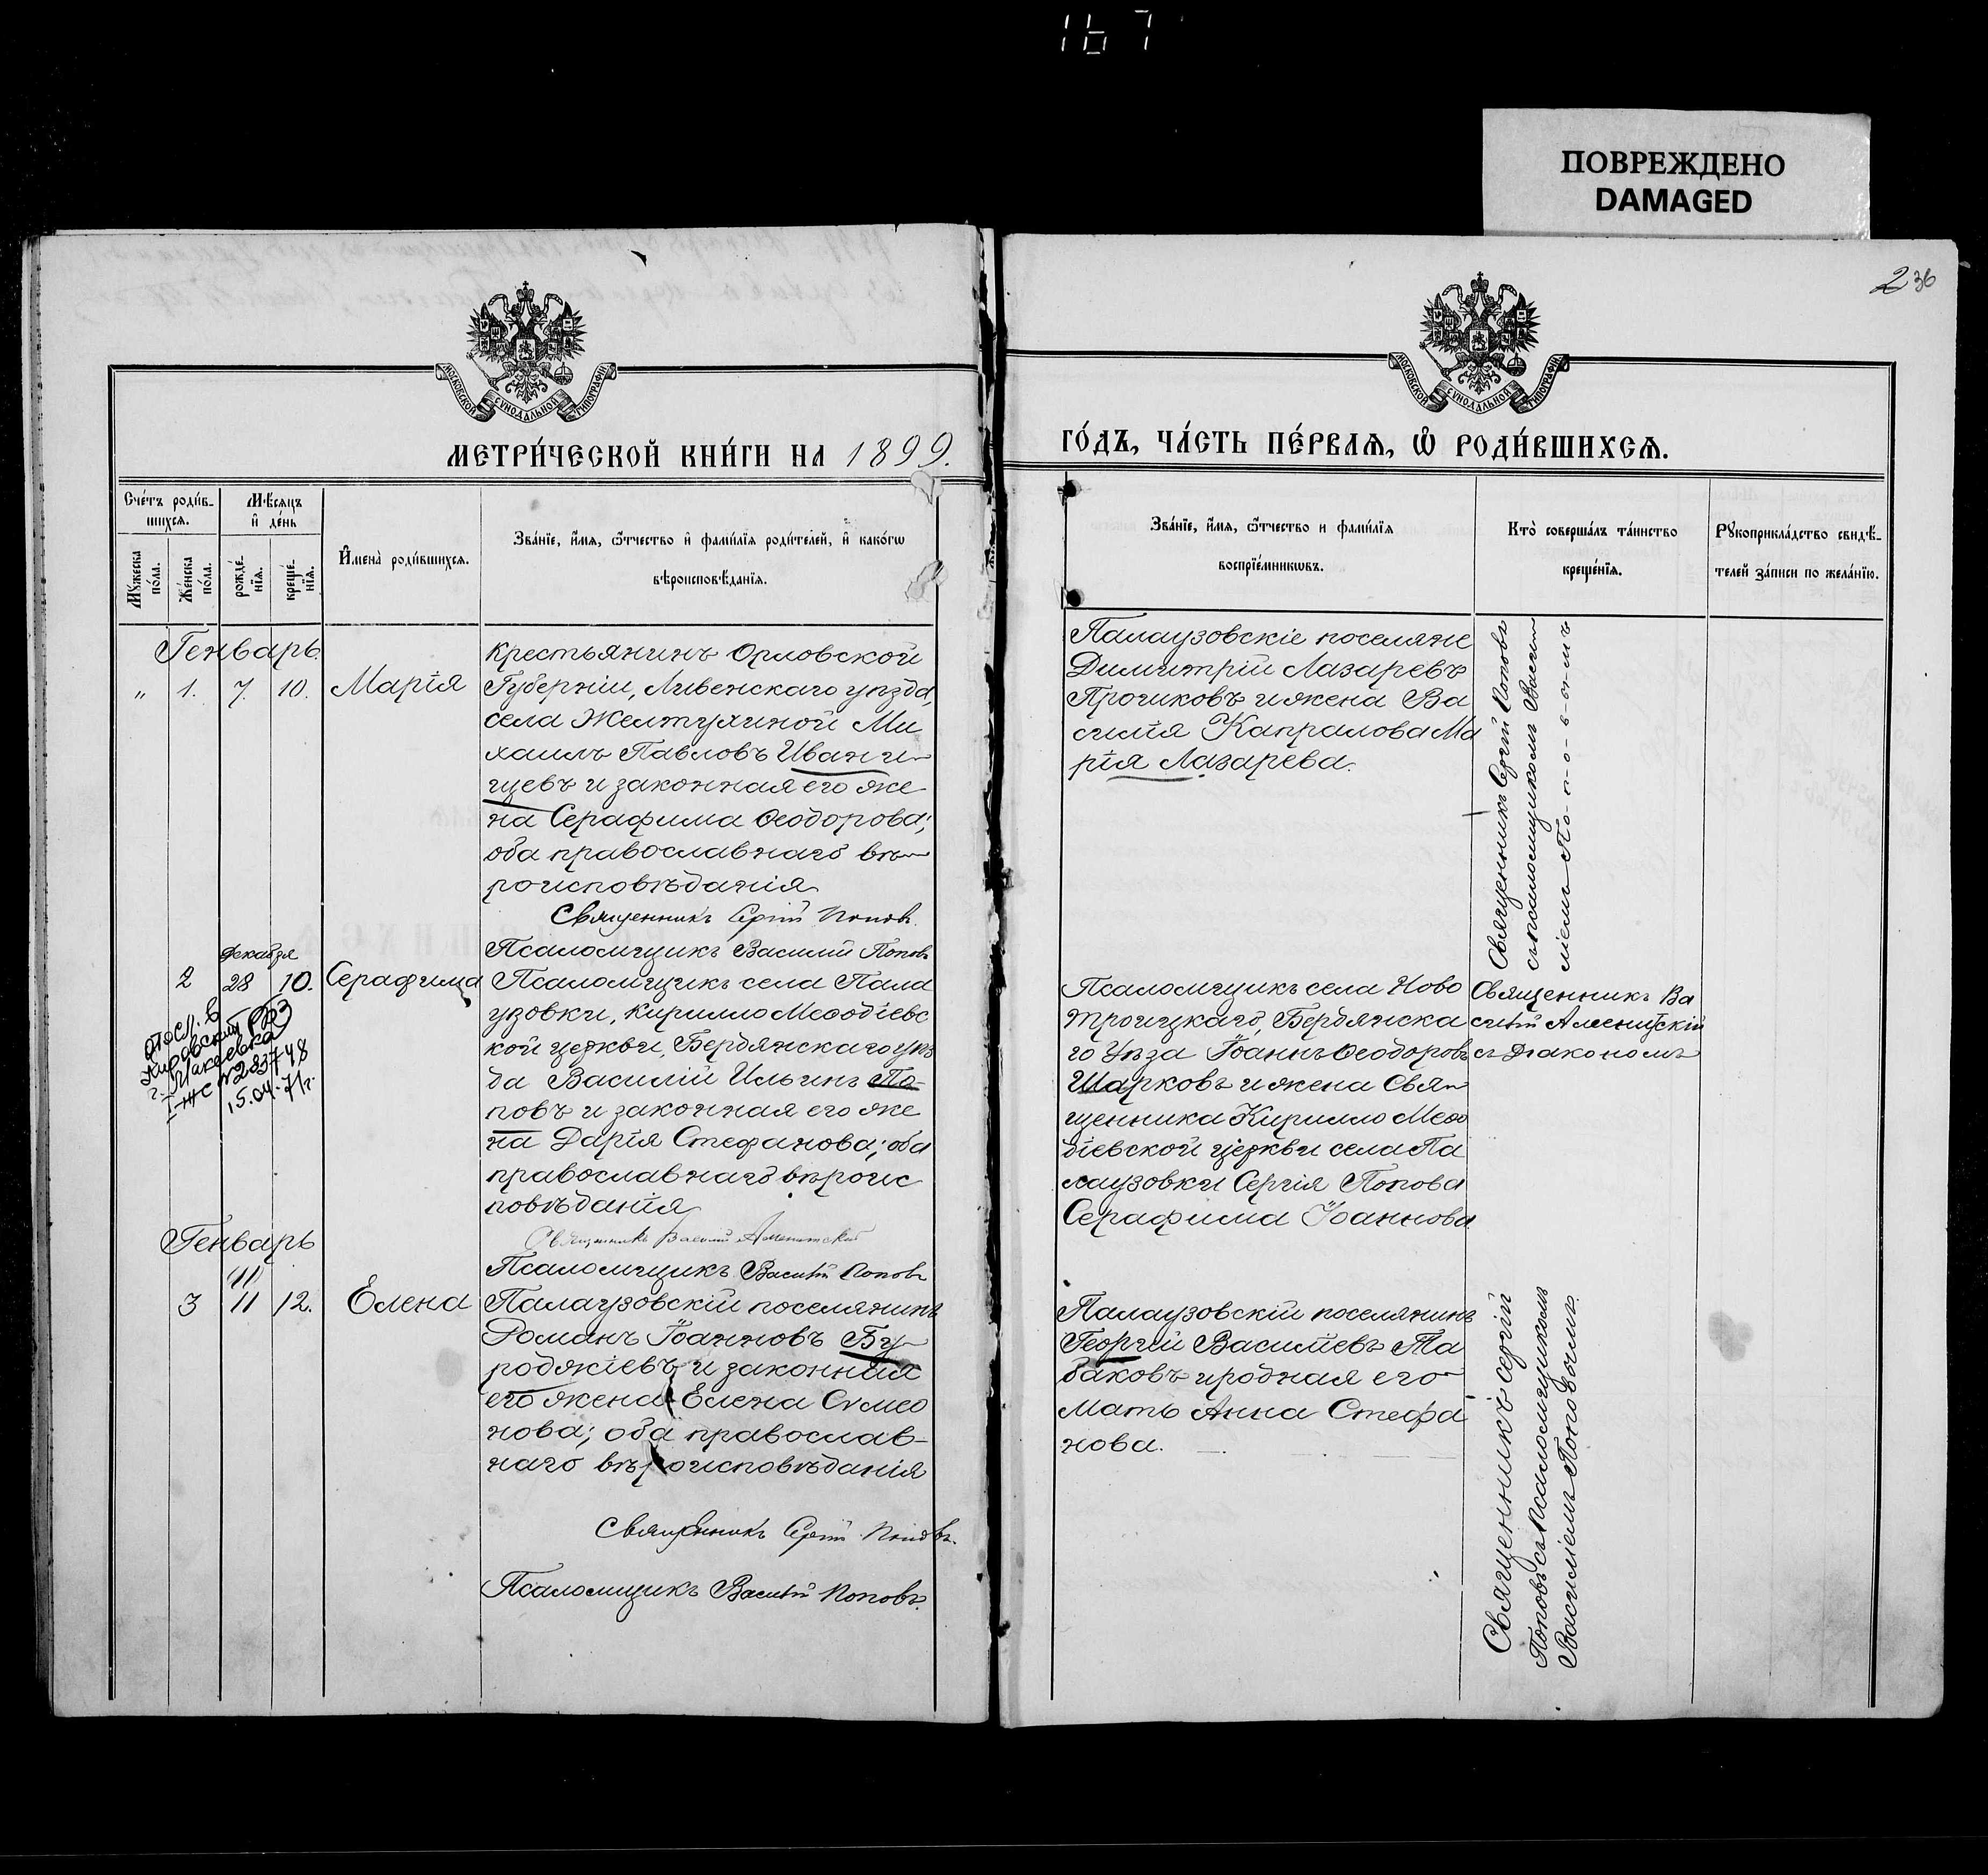 167
ПОВРЕЖДЕНО
DAMAGED
236
МОСКОВСКОЙ СѴНОДАЛЬНОЙ ТИПОГРАФІИ
МОСКОВСКОЙ СѴНОДАЛЬНОЙ ТИПОГРАФІИ
МЕТРИ́ЧЕСКОЙ КНИ́ГИ НА 1899.
ГО́ДЪ, ЧА́СТЬ ПЕ́РВАѦ, Ѡ҆ РОДИ́ВШИХСѦ.
Сче́тъ роди́в-
шихсѧ.
Мꙋ́жеска по́ла.
Же́нска по́ла.
Мѣ́сѧцъ
и҆ де́нь
рожде́-
нїѧ.
креще́-
нїѧ.
И҆мена̀ роди́вшихсѧ.
Зва́нїе, и҆́мѧ, ѻ҆́тчество и҆ фами́лїѧ роди́телей, и҆ како́гѡ
вѣроисповѣ́данїѧ.
Зва́нїе, и҆́мѧ, ѻ҆́тчество и фами́лїѧ
воспрїе́мникѡвъ.
Кто̀ соверша́лъ та́инство
креще́нїѧ.
Рꙋкоприкла́дство свидѣ́-
телей за́писи по жела́нїю.
Генварь.
„ 1. 7. 10. Марія
Крестьянинъ Орловской
Губерніи, Ливенскаго уѣзда,
села Желтухиной Ми
хаилъ Павловъ Иванчи-
щевъ и законная его же
на Серафима Ѳеодорова;
оба православнаго вѣ-
роисповѣданія
Священникъ Сергій Поповъ
Псаломщикъ Василій Поповъ
Палаузовскіе поселяне
Димитрій Лазаревъ
Прочиковъ и жена Ва
силія Капралова Ма
рія Лазарева.
Священникъ Сергій Поповъ
съ псаломщикомъ Васи-
ліемъ По-по-в-ы-мъ
декабря
2 28 10. Серафима
Псаломщикъ села Пала
узовки, Кирилло Меѳодіевс
кой церкви, Бердянскаго уѣз
да Василій Ильинъ По-
повъ и законная его же
на Дарія Стефанова; оба
православнаго вѣроис
повѣданія
Священникъ Василій Аменитскій
Псаломщикъ Василій Поповъ
Кировский РЗ
г. Макеевка
I-ЖС №283748
15.04.71г.
Псаломщикъ села Ново
троицкаго, Бердянска
го Уѣза Іоаннъ Ѳеодоровъ
Шарковъ и жена Свя-
щенника Кирилло Меѳо
діевской церкви села Па
лаузовки Сергія Попова
Серафима Іоаннова.
Священникъ Ва
силій Аменитскій
съ Діакономъ
Генварь
(11)
3 11 12. Елена
Палаузовскій поселянинъ
Романъ Іоанновъ Бу-
роджіевъ и законная
его жена Елена Симео
нова; оба православ-
наго вѣроисповѣданія
Священникъ Сергій Поповъ.
Псаломщикъ Василій Поповъ.
Палаузовскій поселянинъ
Георгій Василіевъ Та
баковъ и родная его
Мать Анна Стефа
нова.
Священникъ Сергій
Поповъ съ Псаломщикомъ
Василіемъ Поповымъ.